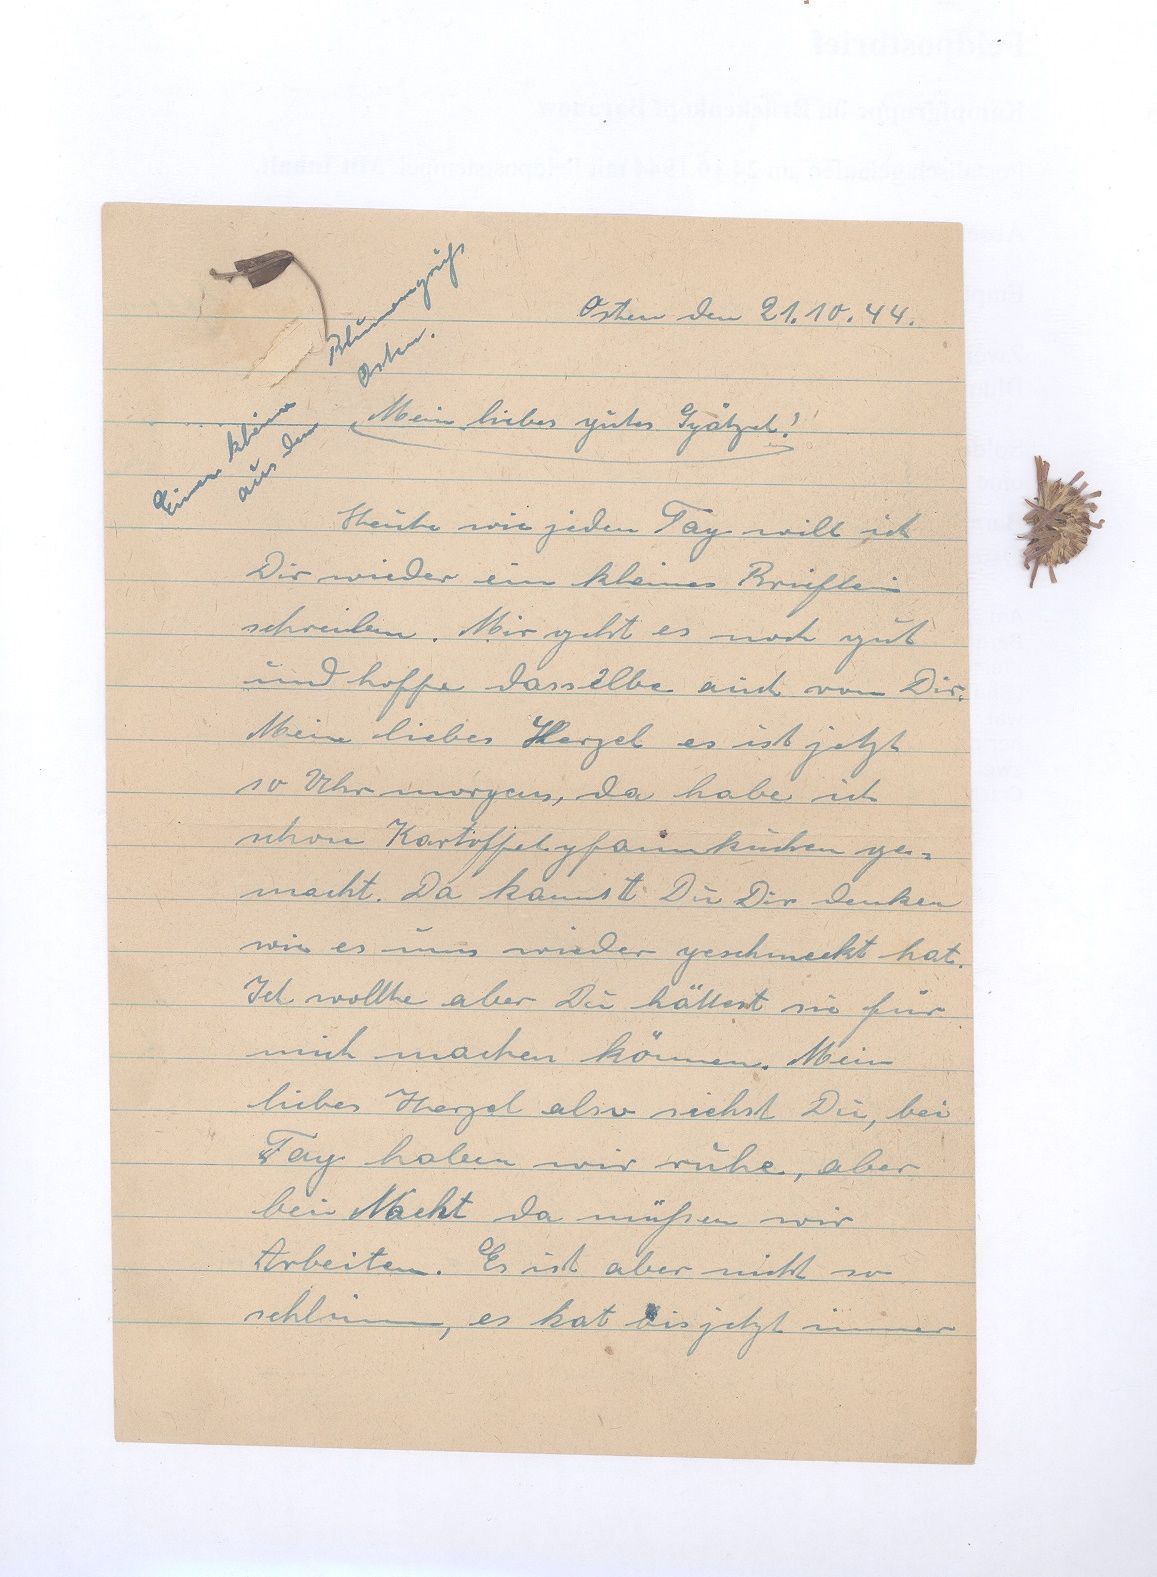 Osten den 21.10.44.
Einen kleinen Blumengruß
aus dem Osten.
Mein liebes gutes
Heute wie jeden Tag will ich
Dir wieder ein kleines Brieflein
schreiben. Mir geht es noch gut
und hoffe dasselbe auch von Dir.
Mein liebes Herzel es ist jetzt
10 Uhr morgens, da habe ich
schon Kartoffelpfannkuchen ge=
macht. Da kannst Du Dir denken
wie es uns wieder geschmeckt hat.
Ich wollte aber Du hättest sie für
mich machen können. Mein
liebes Herzel also siehst Du, bei
Tag haben wir ruhe, aber
bei Nacht da müßen wir
Arbeiten. Es ist aber nicht so
schlimm, es hat bis jetzt immer